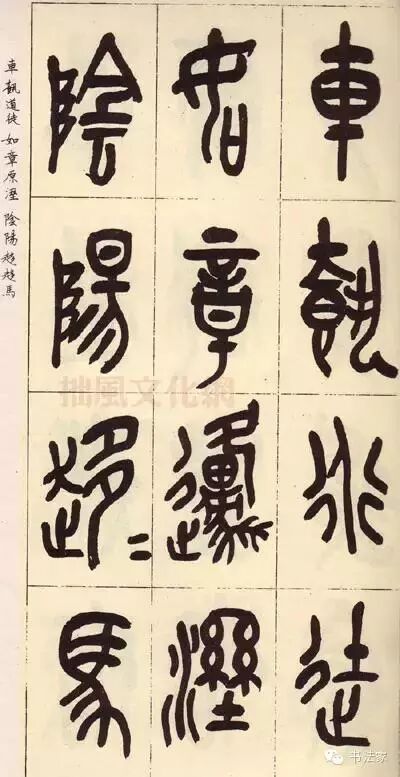 車行徒
如章邍溼
陰陽趍=馬
車道徒 如章原溼 陰陽 趍趍馬
拙風文化網
书法家